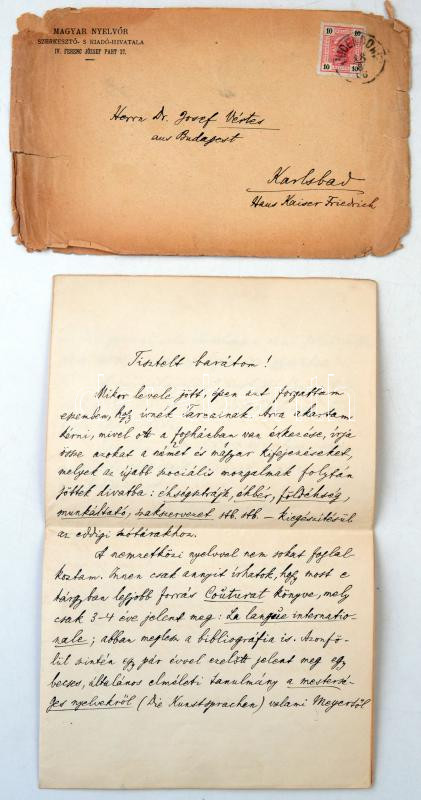 MAGYAR NYELVŐR
SZERKESZTŐ- S KIADÓ-HIVATALA
IV. FERENC JÓZSEF PART 27.
10 10
Herrn Dr. Josef Vértes
aus Budapest
Karlsbad
Haus Kaiser Friedrich
Tisztelt barátom!
Mikor levele jött, épen azt forgattam
eszemben, hogy irnék Tarcainak. Arra akartam
kérni, mivel ott a fogházban van étkezése, irja
össze azokat a német és magyar kifejezéseket,
melyek az újabb szociális mozgalmak folytán
jöttek divatba: éhségsztrájk, éhbér, földéhség,
munkáltató, szakszervezet stb. stb. – kiegészítésül
az eddigi szótárakhoz.
A nemzetközi nyelvvel nem sokat foglal-
koztam. Innen csak annyit írhatok, hogy most e
tárgyban legjobb forrás Couturat könyve, mely
csak 3-4 éve jelent meg: La langue internatio-
nale; abban meglesz a bibliográfia is. Azonfö-
lül szintén egy pár évvel ezelőtt jelent meg egy
becses, általános elméleti tanulmány a mestersé-
ges nyelvekről (Die Kunstsprachen) valami Meyertől